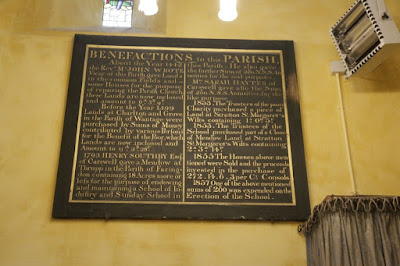 BENEFACTIONS to this PARISH.
About the Year 1442
the Revd Mr JOHN
Vicar of this Parish gave Land &
in the common Fields and
some Houses for the purpose of
repairing the Parish Church
these Lands are now inclosed
and amount to
Before the Year 1599
Lands at Charlton and Grove
in the Parish of Wantage were
purchased by Sums of Money
contributed by various Persons
for the Benefit of the Poor, which
Lands are now inclosed and
Amount to
1793 HENRY SOUTHBY Esqr
of Carswell gave a Meadow at
Thrupp in the Parish of Faring-
don containing 18 Acres more or
less for the purpose of endowing
and maintaining a School of In-
dustry and Sunday School in
this Parish. He also gave
the further Sum of
means for the said purpose
Mrs SARAH HAYTER
Carswell gave also the Sum
of like purpose
1853 The Trustees of the poor
Charity purchased a piece of
Land at Stratton St Margaret's
Wilts containing
1853. The Trustees of the
School purchased part of a Close
of Meadow Land at Stratton
St Margaret's Wilts containing
2:3:14
1855 The Houses above men
tioned were Sold and the proceeds
invested in the purchase of
272. 14. 6. 3 per Ct Consols
1857 One of the above mentioned
sums of 200 was expended on the
Erection of the School.